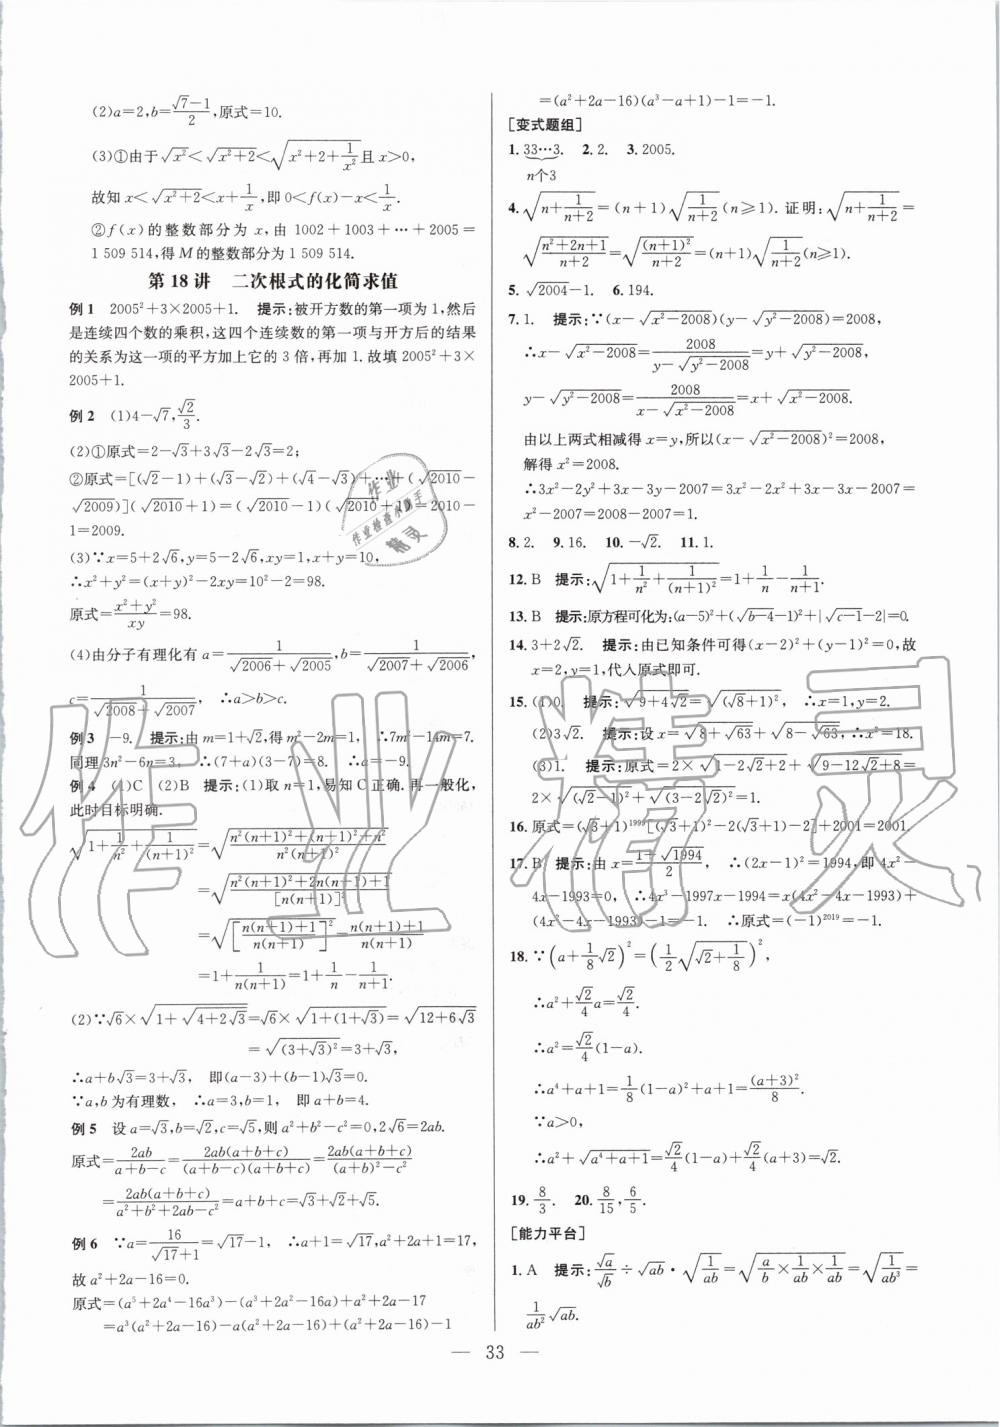 (2)a=2,b=(√7-1)/2,原式=10.
(3)①由于√(x²)<√(x²+2)<√(x²+2+1/x²)且x>0,
故知x<√(x²+2)<x+1/x,即0<f(x)-x<1/x.
②f(x)的整数部分为x,由1002+1003+…+2005=
1 509 514,得M的整数部分为1 509 514.
第18讲 二次根式的化简求值
例1 2005²+3×2005+1. 提示:被开方数的第一项为1,然后
是连续四个数的乘积,这四个连续数的第一项与开方后的结果
的关系为这一项的平方加上它的3倍,再加1.故填2005²+3×
2005+1.
例2 (1)4-√7,√2/3.
(2)①原式=2-√3+3√3-2√3=2;
②原式=[(√2-1)+(√3-√2)+(√4-√3)+…+(√2010-
√2009)](√2010+1)=(√2010-1)(√2010+1)=2010-
1=2009.
(3)∵x=5+2√6,y=5-2√6,xy=1,x+y=10,
∴x²+y²=(x+y)²-2xy=10²-2=98.
原式=(x²+y²)/xy=98.
(4)由分子有理化有a=1/(√2006+√2005),b=1/(√2007+√2006),
c=1/(√2008+√2007), ∴a>b>c.
例3 -9. 提示:由m=1+√2,得m²-2m=1, ∴7m²-14m=7.
同理3n²-6n=3, ∴(7+a)(3-7)=8. ∴a=-9.
例4 (1)C (2)B 提示:(1)取n=1,易知C正确.再一般化,
此时目标明确.
√(1+1/n²+1/(n+1)²)=√((n²(n+1)²+(n+1)²+n²)/(n²(n+1)²))
=√((n²(n+1)²+2n(n+1)+1)/[n(n+1)]²)
=√([(n(n+1)+1)/(n(n+1))]²)=(n(n+1)+1)/(n(n+1))
=1+1/(n(n+1))=1+1/n-1/(n+1).
(2)∵√6×√(1+√(4+2√3))=√6×√(1+(1+√3))=√(12+6√3)
=√((3+√3)²)=3+√3,
∴a+b√3=3+√3, 即(a-3)+(b-1)√3=0.
∵a,b为有理数, ∴a=3,b=1, 即a+b=4.
例5 设a=√3,b=√2,c=√5,则a²+b²-c²=0,2√6=2ab.
原式=2ab/(a+b-c)=2ab(a+b+c)/((a+b-c)(a+b+c))=2ab(a+b+c)/((a+b)²-c²)
=2ab(a+b+c)/(a²+b²+2ab-c²)=a+b+c=√3+√2+√5.
例6 ∵a=16/(√17+1)=√17-1, ∴a+1=√17,a²+2a+1=17,
故a²+2a-16=0.
原式=(a⁵+2a⁴-16a³)-(a³+2a²-16a)+a²+2a-17
=a³(a²+2a-16)-a(a²+2a-16)+(a²+2a-16)-1
=(a²+2a-16)(a³-a+1)-1=-1.
[变式题组]
1. 33…3. 2. 2. 3. 2005.
n个3
4. √(n+1/(n+2))=(n+1)√(1/(n+2))(n≥1). 证明:√(n+1/(n+2))=
√((n²+2n+1)/(n+2))=√((n+1)²/(n+2))=(n+1)√(1/(n+2))(n≥1).
5. √2004-1. 6. 194.
7. 1. 提示:∵(x-√(x²-2008))(y-√(y²-2008))=2008,
∴x-√(x²-2008)=2008/(y-√(y²-2008))=y+√(y²-2008),
y-√(y²-2008)=2008/(x-√(x²-2008))=x+√(x²-2008).
由以上两式相减得x=y,所以(x-√(x²-2008))²=2008,
解得x²=2008.
∴3x²-2y²+3x-3y-2007=3x²-2x²+3x-3x-2007=x²-2007=1.
8. 2. 9. 16. 10. -√2. 11. 1.
12. B 提示:√(1+1/n²+1/(n+1)²)=1+1/n-1/(n+1).
13. B 提示:原方程可化为:(a-5)²+(√(b-4)-1)²+|√(c-1)-2|=0.
14. 3+2√2. 提示:由已知条件可得(x-2)²+(y-1)²=0,故
x=2,y=1,代入原式即可.
15. (1)0. 提示:√(9+4√2)=√((√8+1)²), ∴x=1,y=2.
(2)3√2. 提示:设x=√(8+√63)+√(8-√63),∴x²=18.
(3)1. 提示:原式=2×√(1-2√2+2)+√(9-12√2+8)=
2×√((√2-1)²)+√((3-2√2)²)=1.
16. 原式=(√3+1)¹⁹⁹⁹[(√3+1)²-2(√3+1)-2]+2001=2001.
17. B 提示:由x=(1+√1994)/2, ∴(2x-1)²=1994,即4x²-
4x-1993=0, ∴4x³-1997x-1994=x(4x²-4x-1993)+
(4x²-4x-1993)-1=-1. ∴原式=(-1)²⁰¹⁹=-1.
18. ∵(a+1/8√2)²=(1/2√(√2+1/8))²,
∴a²+√2/4a=√2/4.
∴a²=√2/4(1-a).
∴a⁴+a+1=1/8(1-a)²+a+1=(a+3)²/8.
∵a>0,
∴a²+√(a⁴+a+1)=√2/4(1-a)+√2/4(a+3)=√2.
19. 8/3. 20. 8/15,6/5.
[能力平台]
1. A 提示:√a/√b÷√ab·√(1/ab)=√(a/b×1/ab×1/ab)=√(1/ab³)=
1/ab²√ab.
33
作业
作业检查小助手
精灵
作业精灵